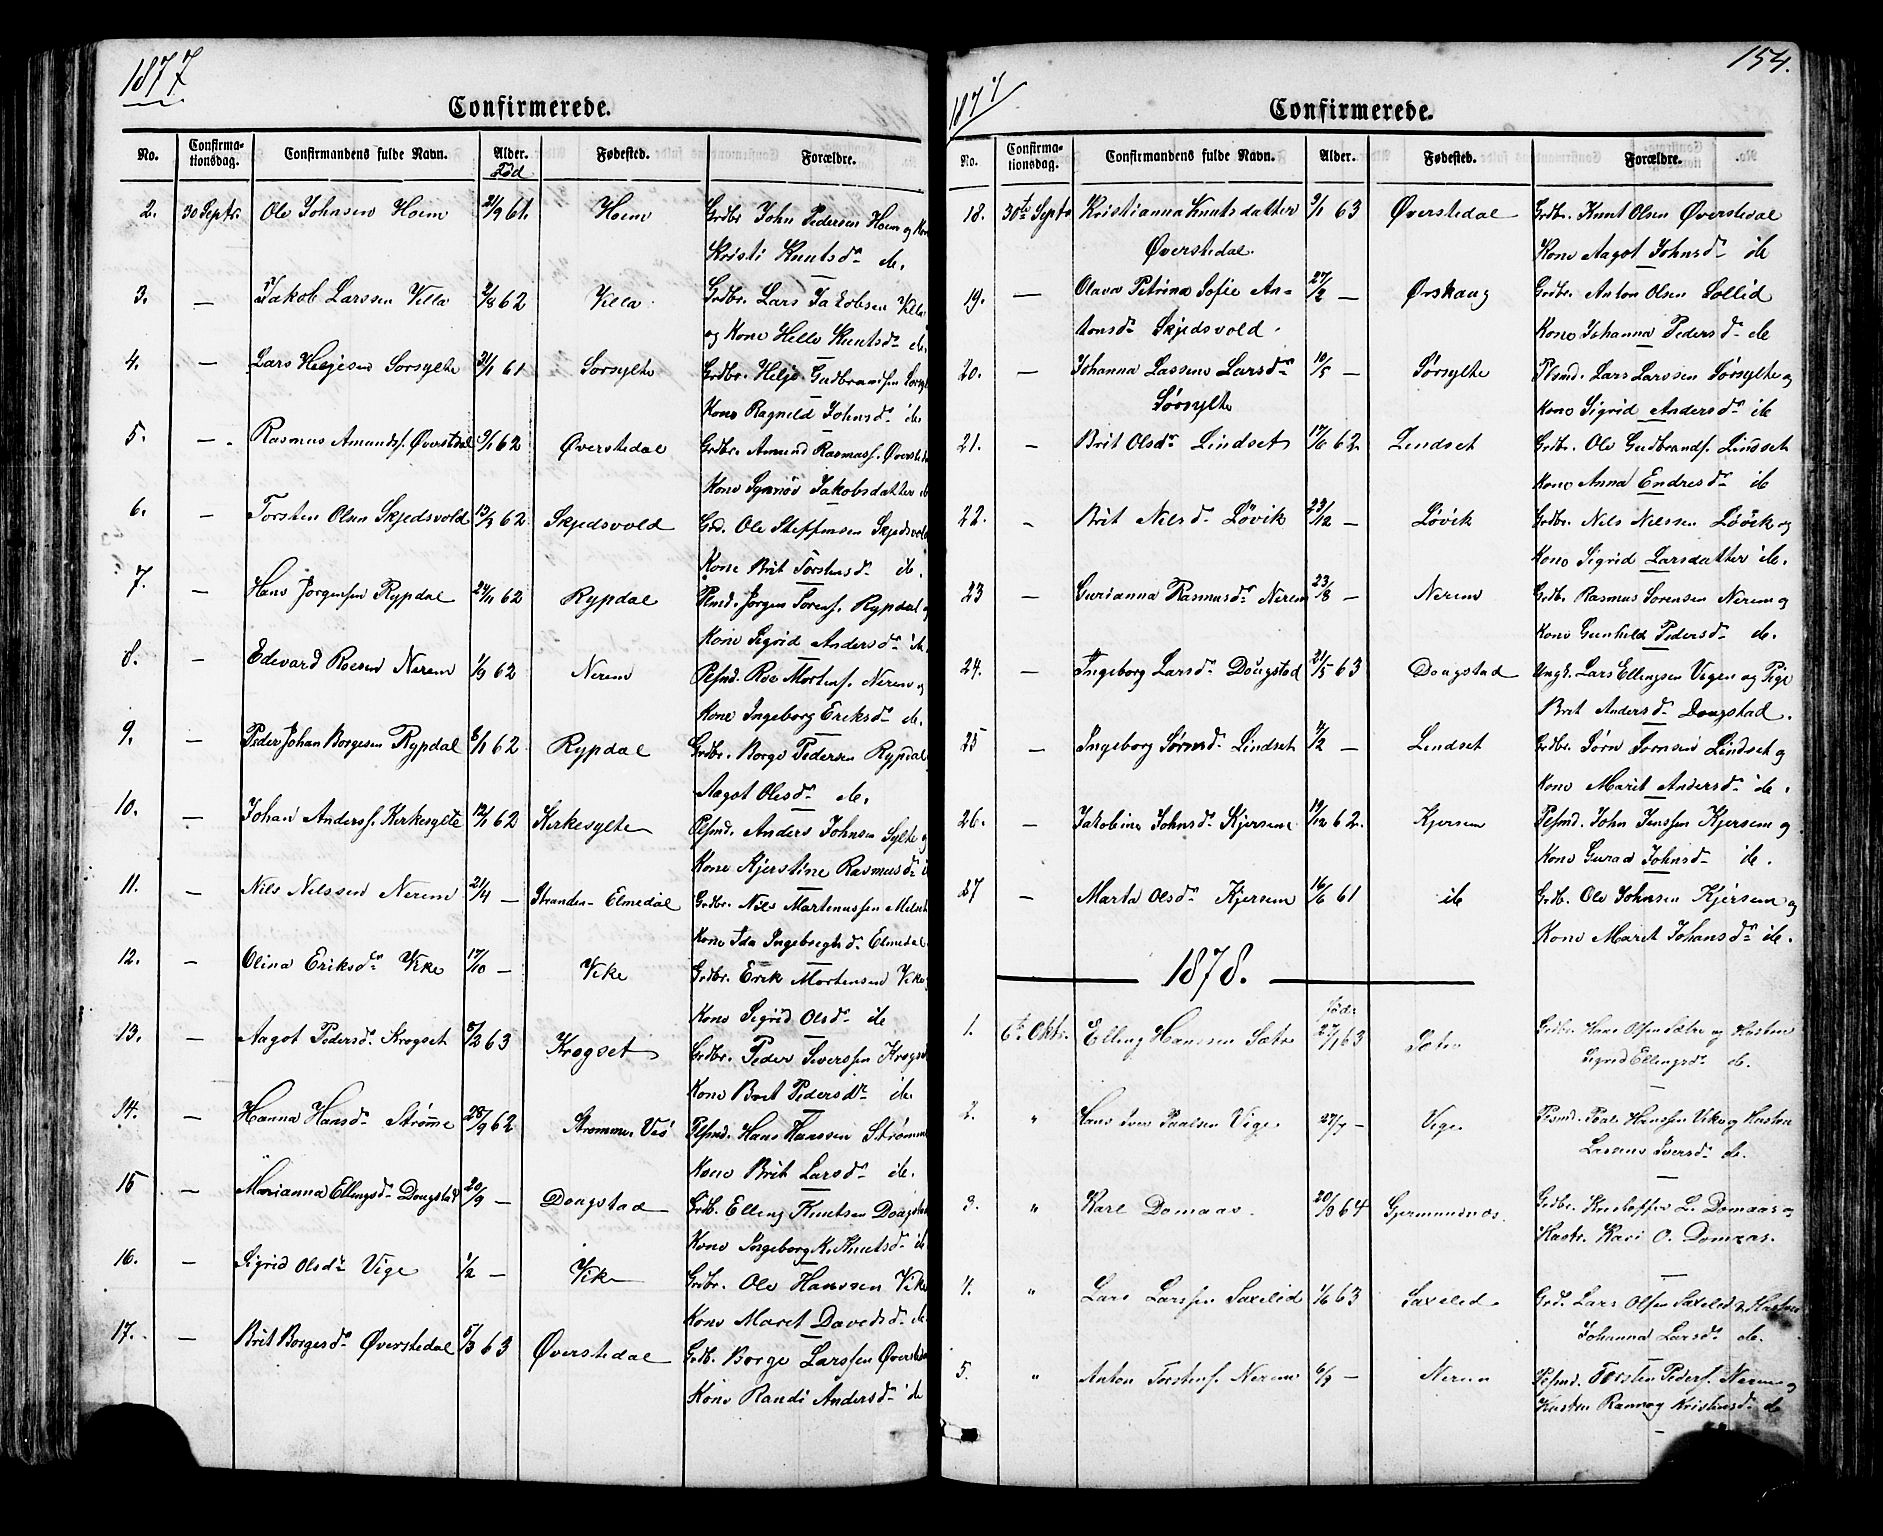 1877
Confirmerede.
No. Confirma-tionsdag. Confirmandens fulde Navn. Alder. Fødested. Forældre.
Fød
2. 30 Septr. Ole Johnsen Hoem 2/9 61. Hoem Grdbr. John Pedersen Hoem og Kone
Kristi Knutsdr. ib.
3. — Jakob Larssen Villa 2/8 62 Villa Grdbr. Lars Jakobsen Villa
og Kone Helle Knutsdr. ib.
4. — Lars Heljesen Sorsylte 21/1 61 Sorsylte Grdbr. Helje Gudbrandsen Sorsylte
Kone Ragnild Johnsdr. ib
5. — Rasmus Amunds. Øverstedal 9/1 62 Øverstedal Grdbr. Amund Rasmuss. Øverste
Kone Synnøv Jakobsdatter ib
6. — Torsten Olsen Skjedsvold 13/9 62 Skjedsvold Grd. Ole Steffensen Skjedsvold
Kone Brit Torstensdr. ib.
7. — Hans Jørgensen Rypdal 24/11 62 Rypdal Plsmd. Jørgen Sorens. Rypdal og
Kone Sigrid Andersdr. ib.
8. — Edevard Roesen Nerem 1/9 62 Nerem Plsmd. Roe Mortens. Nerem og
Kone Ingeborg Eriksdr. ib.
9. — Peder Johan Borgesen Rypdal 8/1 62 Rypdal Grdbr. Borge Pedersen Rypdal
Aagot Olesdr. ib.
10. — Johan Anderss. Kirkesylte 12/1 62 Kirkesylte Plsmd. Anders Johnsen Sylte og
Kone Kjerstine Rasmusdr. i
11. — Nils Nilssen Nerem 21/4 — Stranden Elmedal Grdbr. Nils Martinussen
Kone Ida Ingebregtsdr. Elmedal
12. — Olina Eriksdr. Vike 17/10 — Vike Grdbr. Erik Mortensen Vike
Kone Sigrid Olsdr. ib
13. — Aagot Pedersdr. Krogset 8/2 63 Krogset Grdbr. Peder Iverssen Krogs
Kone Brit Pedersdr. ib.
14. — Hanna Hansdr. Strømme 28/9 62 Strømme, Veø Plsmd. Hans Hanssen Strømme
Kone Brit Larsdr. ib.
15 — Marianna Ellingsdr. Dougstad 20/9 — Dougstad Grdb. Elling Knutsen Dougstad
Kone Ingeborg K. Knutsdr. ib
16. — Sigrid Olsdr. Vige 1/2 — Vike Grdbr. Ole Hanssen Vike
Kone Maret Davedsdr. ib
17. — Brit Borgesdr. Øverstedal 5/3 63 Øverstedal Grdb. Borge Larssen Øverste
Kone Randi Andersdr. ib
1877
154.
Confirmerede.
No. Confirma-tionsdag. Confirmandens fulde Navn. Alder. Fødested. Forældre.
18. 30te Septr Kristianna Knutsdatter 9/1 63 Øverstedal Grdbr. Knut Olsen Øverstedal
Øverstedal. Kone Aagot Johnsdr. ib
19. — Olava Petrina Sofie An= 27/2 — Ørskaug Grdbr. Anton Olsen Sollid
tonsdr. Skjedsvold. Kone Johanna Pedersdr. ib
20. — Johanna Lassene Larsdr. 10/5 — Sørsylte Plsmd. Lars Larssen Sørsylte og
Sørsylte Kone Sigrid Andersdr. ib
21. — Brit Olsdr. Lindset 17/6 62. Lindset Grdbr. Ole Gudbrands. Lindset
Kone Anna Endresdr. ib
22. — Brit Nilsdr. Løvik 23/12 — Løvik Grdbr. Nils Nilssen Løvik og
Kone Sigrid Larsdatter ib.
23 — Gurianna Rasmusdr. Nerem 23/8 — Nerem Grdb. Rasmus Sorensen Nerem og
Kone Gunhild Pedersdr. ib.
24. — Ingeborg Larsdr. Dougstad 21/5 63 Dougstad Ungk. Lars Ellingsen Vigen og Pige
Brit Andersdr. Dougstad.
25 — Ingeborg Sørensdr. Lindset 4/2 — Lindset Grdbr. Sørn Sornsen Lindset og
Kone Marit Andersdr. ib.
26. — Jakobine Johnsdr. Kjersem 19/12 62. Kjersem Plsmd. John Jenssen Kjersem og
Kone Guraa Johnsdr. ib.
27 — Marta Olsdr. Kjersem 16/6 61 ib Grdb. Ole Johnsen Kjersem og
Kone Maret Johansdr. ib.
1878.
født
1. 6te Oktr. Elling Hanssen Sætre 27/1 63 Sætre Grdbr. Hans Olsen Sætre og Hustru
Sigrid Ellingsdr. ib.
2. " Hans Iver Paulsen Vige 27/7 — Vige Plsmd. Paul Hanssen Vike og Hustru
Iversdr. ib.
3. " Karl Domaas. 20/9 64 Gjermundnæs. Grdbr. Kristoffer L. Domaas og
Hustr. Kari O. Domaas.
4. " Lars Larssen Saxelid 1/6 63 Saxelid Grd. Lars Olsen Saxelid & Hustru
Johanna Larsdr. ib.
5. " Anton Torstens. Nerem 6/9 — Nerem Plsmd. Torsten Peders. Nerem og
Hustru Rannog Kristensdr. ib